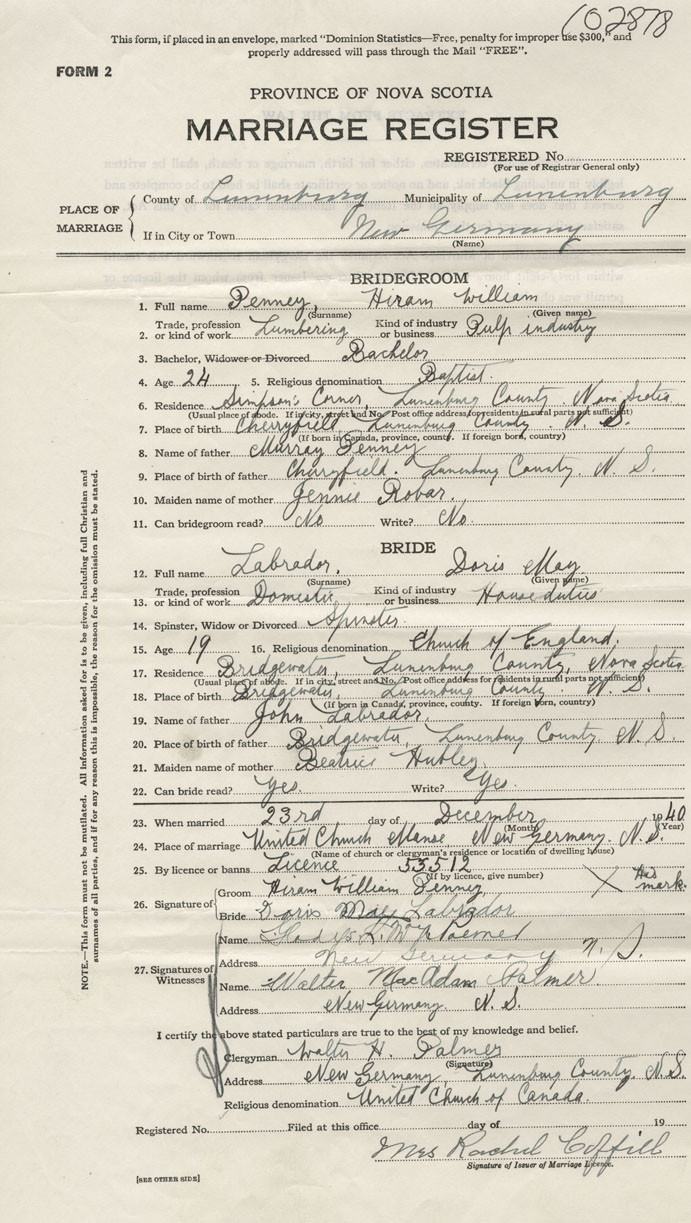 102878
This form, if placed in an envelope, marked "Dominion Statistics—Free, penalty for improper use $300," and
properly addressed will pass through the Mail "FREE".
FORM 2
PROVINCE OF NOVA SCOTIA
MARRIAGE REGISTER
REGISTERED No.
(For use of Registrar General only)
PLACE OF MARRIAGE
County of Lunenburg Municipality of Lunenburg
If in City or Town New Germany
(Name)
BRIDEGROOM
1. Full name Penney, Hiram William
(Surname) (Given name)
2. Trade, profession or kind of work Lumbering Kind of industry or business Pulp industry
3. Bachelor, Widower or Divorced Bachelor
4. Age 24 5. Religious denomination Baptist.
6. Residence Simpson's Corner, Lunenburg County, Nova Scotia
(Usual place of abode. If in city, street and No. Post office address for residents in rural parts not sufficient)
7. Place of birth Cherryfield Lunenburg County. N. S.
(If born in Canada, province, county. If foreign born, country)
8. Name of father Murray Penney
9. Place of birth of father Cherryfield. Lunenburg County, N. S.
10. Maiden name of mother Jennie Robar.
11. Can bridegroom read? No Write? No.
BRIDE
12. Full name Labrador, Doris May
(Surname) (Given name)
13. Trade, profession or kind of work Domestic Kind of industry or business House duties
14. Spinster, Widow or Divorced Spinster.
15. Age 19 16. Religious denomination Church of England.
17. Residence Bridgewater, Lunenburg County, Nova Scotia
(Usual place of abode. If in city, street and No. Post office address for residents in rural parts not sufficient)
18. Place of birth Bridgewater, Lunenburg County N. S.
(If born in Canada, province, county. If foreign born, country)
19. Name of father John Labrador.
20. Place of birth of father Bridgewater, Lunenburg County N. S.
21. Maiden name of mother Beatrice Hubley
22. Can bride read? Yes. Write? Yes.
23. When married 23rd day of December 1940
(Month) (Year)
24. Place of marriage United Church Manse New Germany. N. S.
(Name of church or clergyman's residence or location of dwelling house)
25. By licence or banns Licence 53512
(If by licence, give number)
26. Signature of Groom Hiram William Penney X His mark.
Bride Doris May Labrador
27. Signatures of Witnesses
Name
Address New Germany N. S.
Name Walter MacAdam Palmer
Address New Germany. N. S.
I certify the above stated particulars are true to the best of my knowledge and belief.
Clergyman Walter H. Palmer
(Signature)
Address New Germany, Lunenburg County, N. S.
Religious denomination United Church of Canada.
Registered No. Filed at this office day of 19
Mrs Rachel Coffill
Signature of Issuer of Marriage Licence.
[SEE OTHER SIDE]
NOTE.—This form must not be mutilated. All information asked for is to be given, including full Christian and
surnames of all parties, and if for any reason this is impossible, the reason for the omission must be stated.